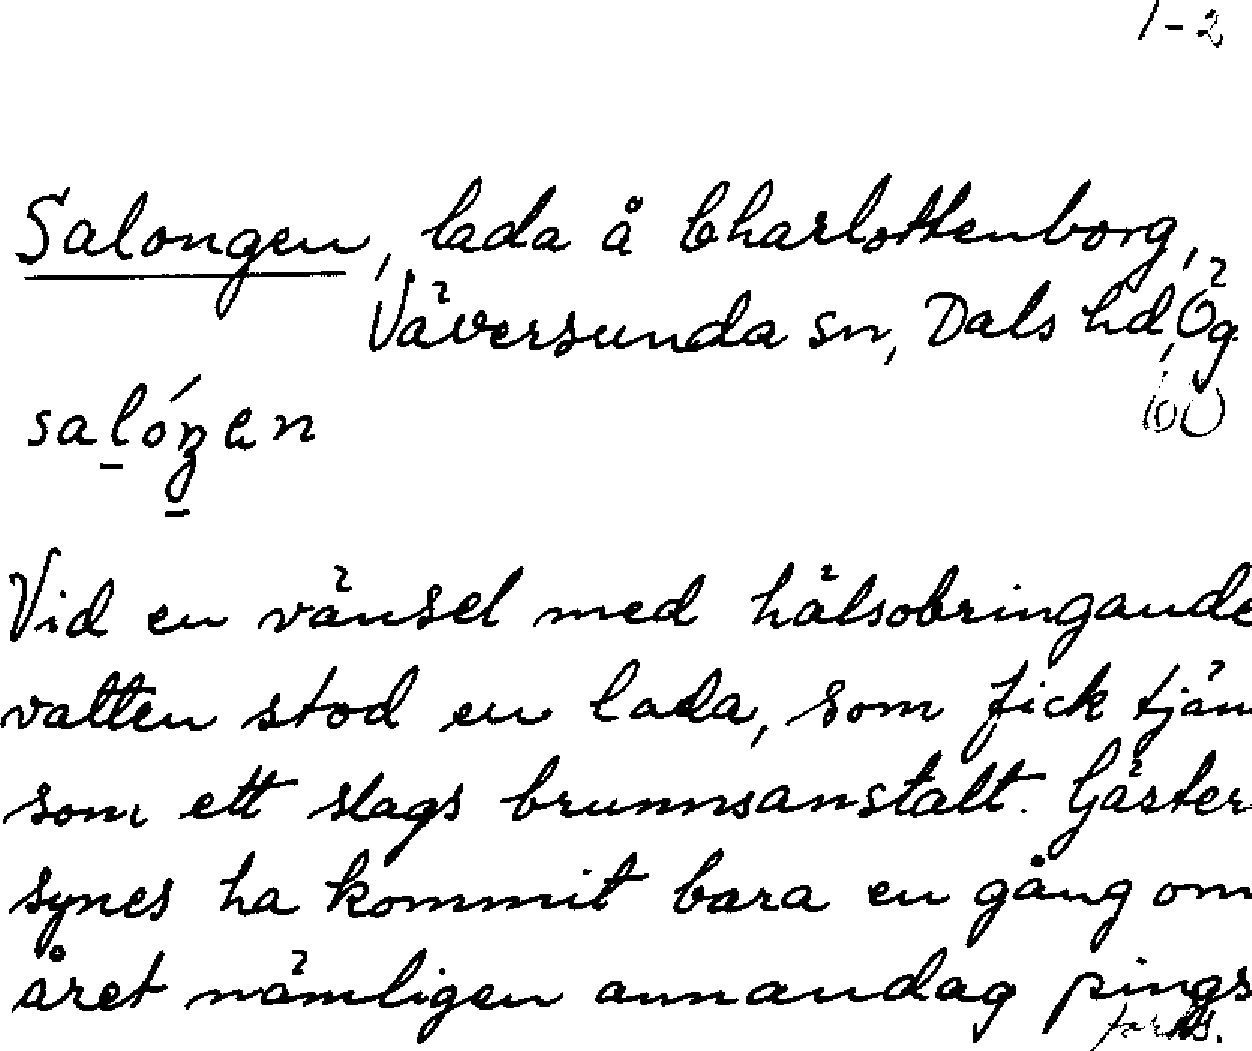 1-2
Salongen, lada å Charlottenborg,
Väversunda sn, Dals hd, Ög.
salóŋen
Vid en vänsel med hälsobringande
vatten stod en lada, som fick tjän
som ett slags brunnsanstalt. Gäster
synes ha kommit bara en gång om
året nämligen annandag pings
forts.